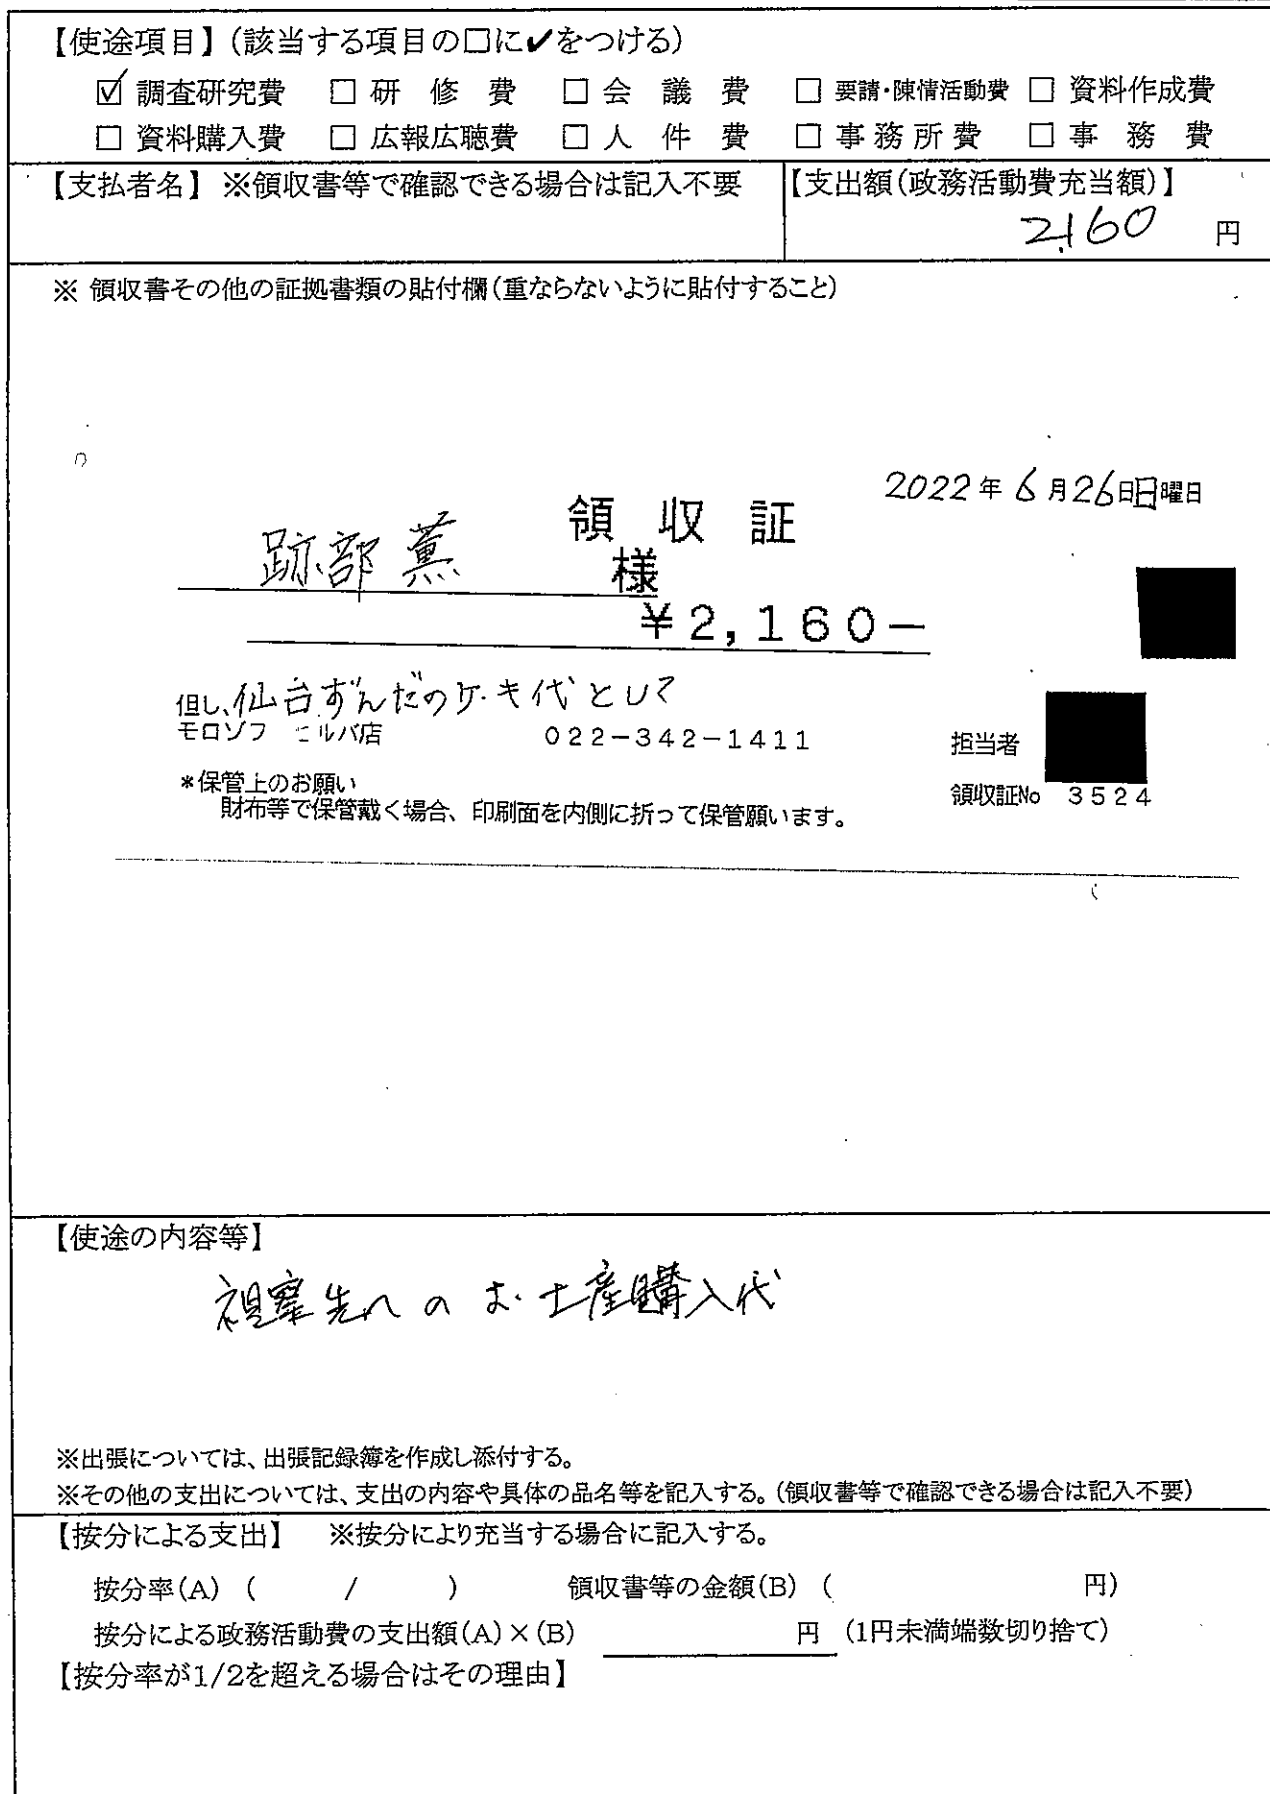 【使途項目】(該当する項目の□に✔をつける)
☑ 調査研究費 □ 研修費 □ 会議費 □ 要請・陳情活動費 □ 資料作成費
□ 資料購入費 □ 広報広聴費 □ 人件費 □ 事務所費 □ 事務費
【支払者名】 ※領収書等で確認できる場合は記入不要 【支出額(政務活動費充当額)】
2,160 円
※ 領収書その他の証拠書類の貼付欄(重ならないように貼付すること)
2022年6月26日日曜日
領収証
跡部 薫 様
¥2,160-
但し、仙台ずんだのケーキ代として
モロゾフ エルパ店 022-342-1411 担当者
*保管上のお願い
財布等で保管戴く場合、印刷面を内側に折って保管願います。
領収証No 3524
【使途の内容等】
視察先へのお土産購入代
※出張については、出張記録簿を作成し添付する。
※その他の支出については、支出の内容や具体の品名等を記入する。(領収書等で確認できる場合は記入不要)
【按分による支出】 ※按分により充当する場合に記入する。
按分率(A) ( / ) 領収書等の金額(B) ( 円)
按分による政務活動費の支出額(A)×(B) 円 (1円未満端数切り捨て)
【按分率が1/2を超える場合はその理由】